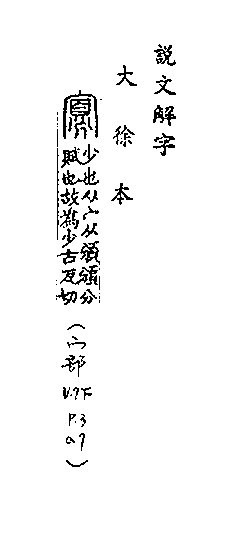 說文解字
大徐本
寡
少也从宀从頒頒分
賦也故為少古瓦切
(宀部
V.7下
P.3
a7)